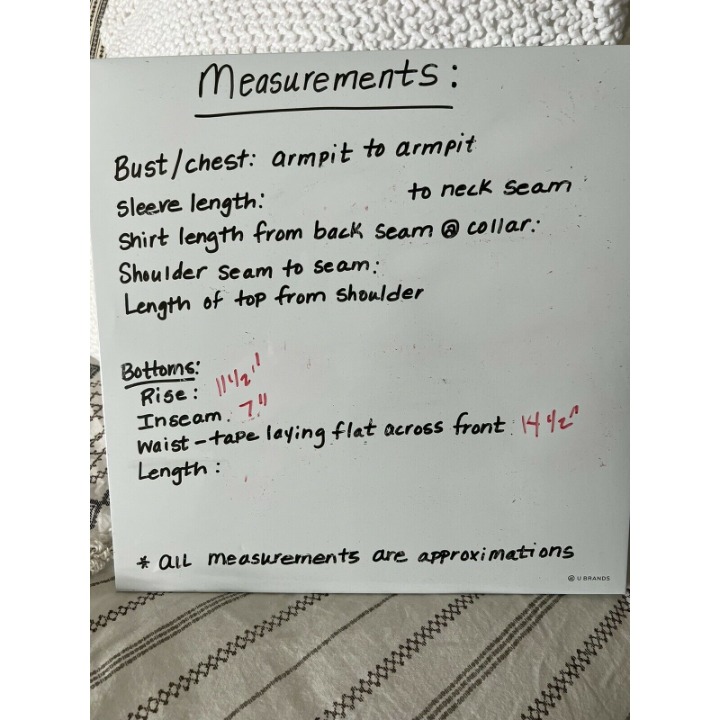 Measurements:
Bust/chest: armpit to armpit
Sleeve length: to neck seam
Shirt length from back seam @ collar:
Shoulder seam to seam:
Length of top from shoulder
Bottoms:
Rise: 11 1/2"
Inseam. 7"
Waist-tape laying flat across front: 14 1/2"
Length:
* All measurements are approximations
U BRANDS